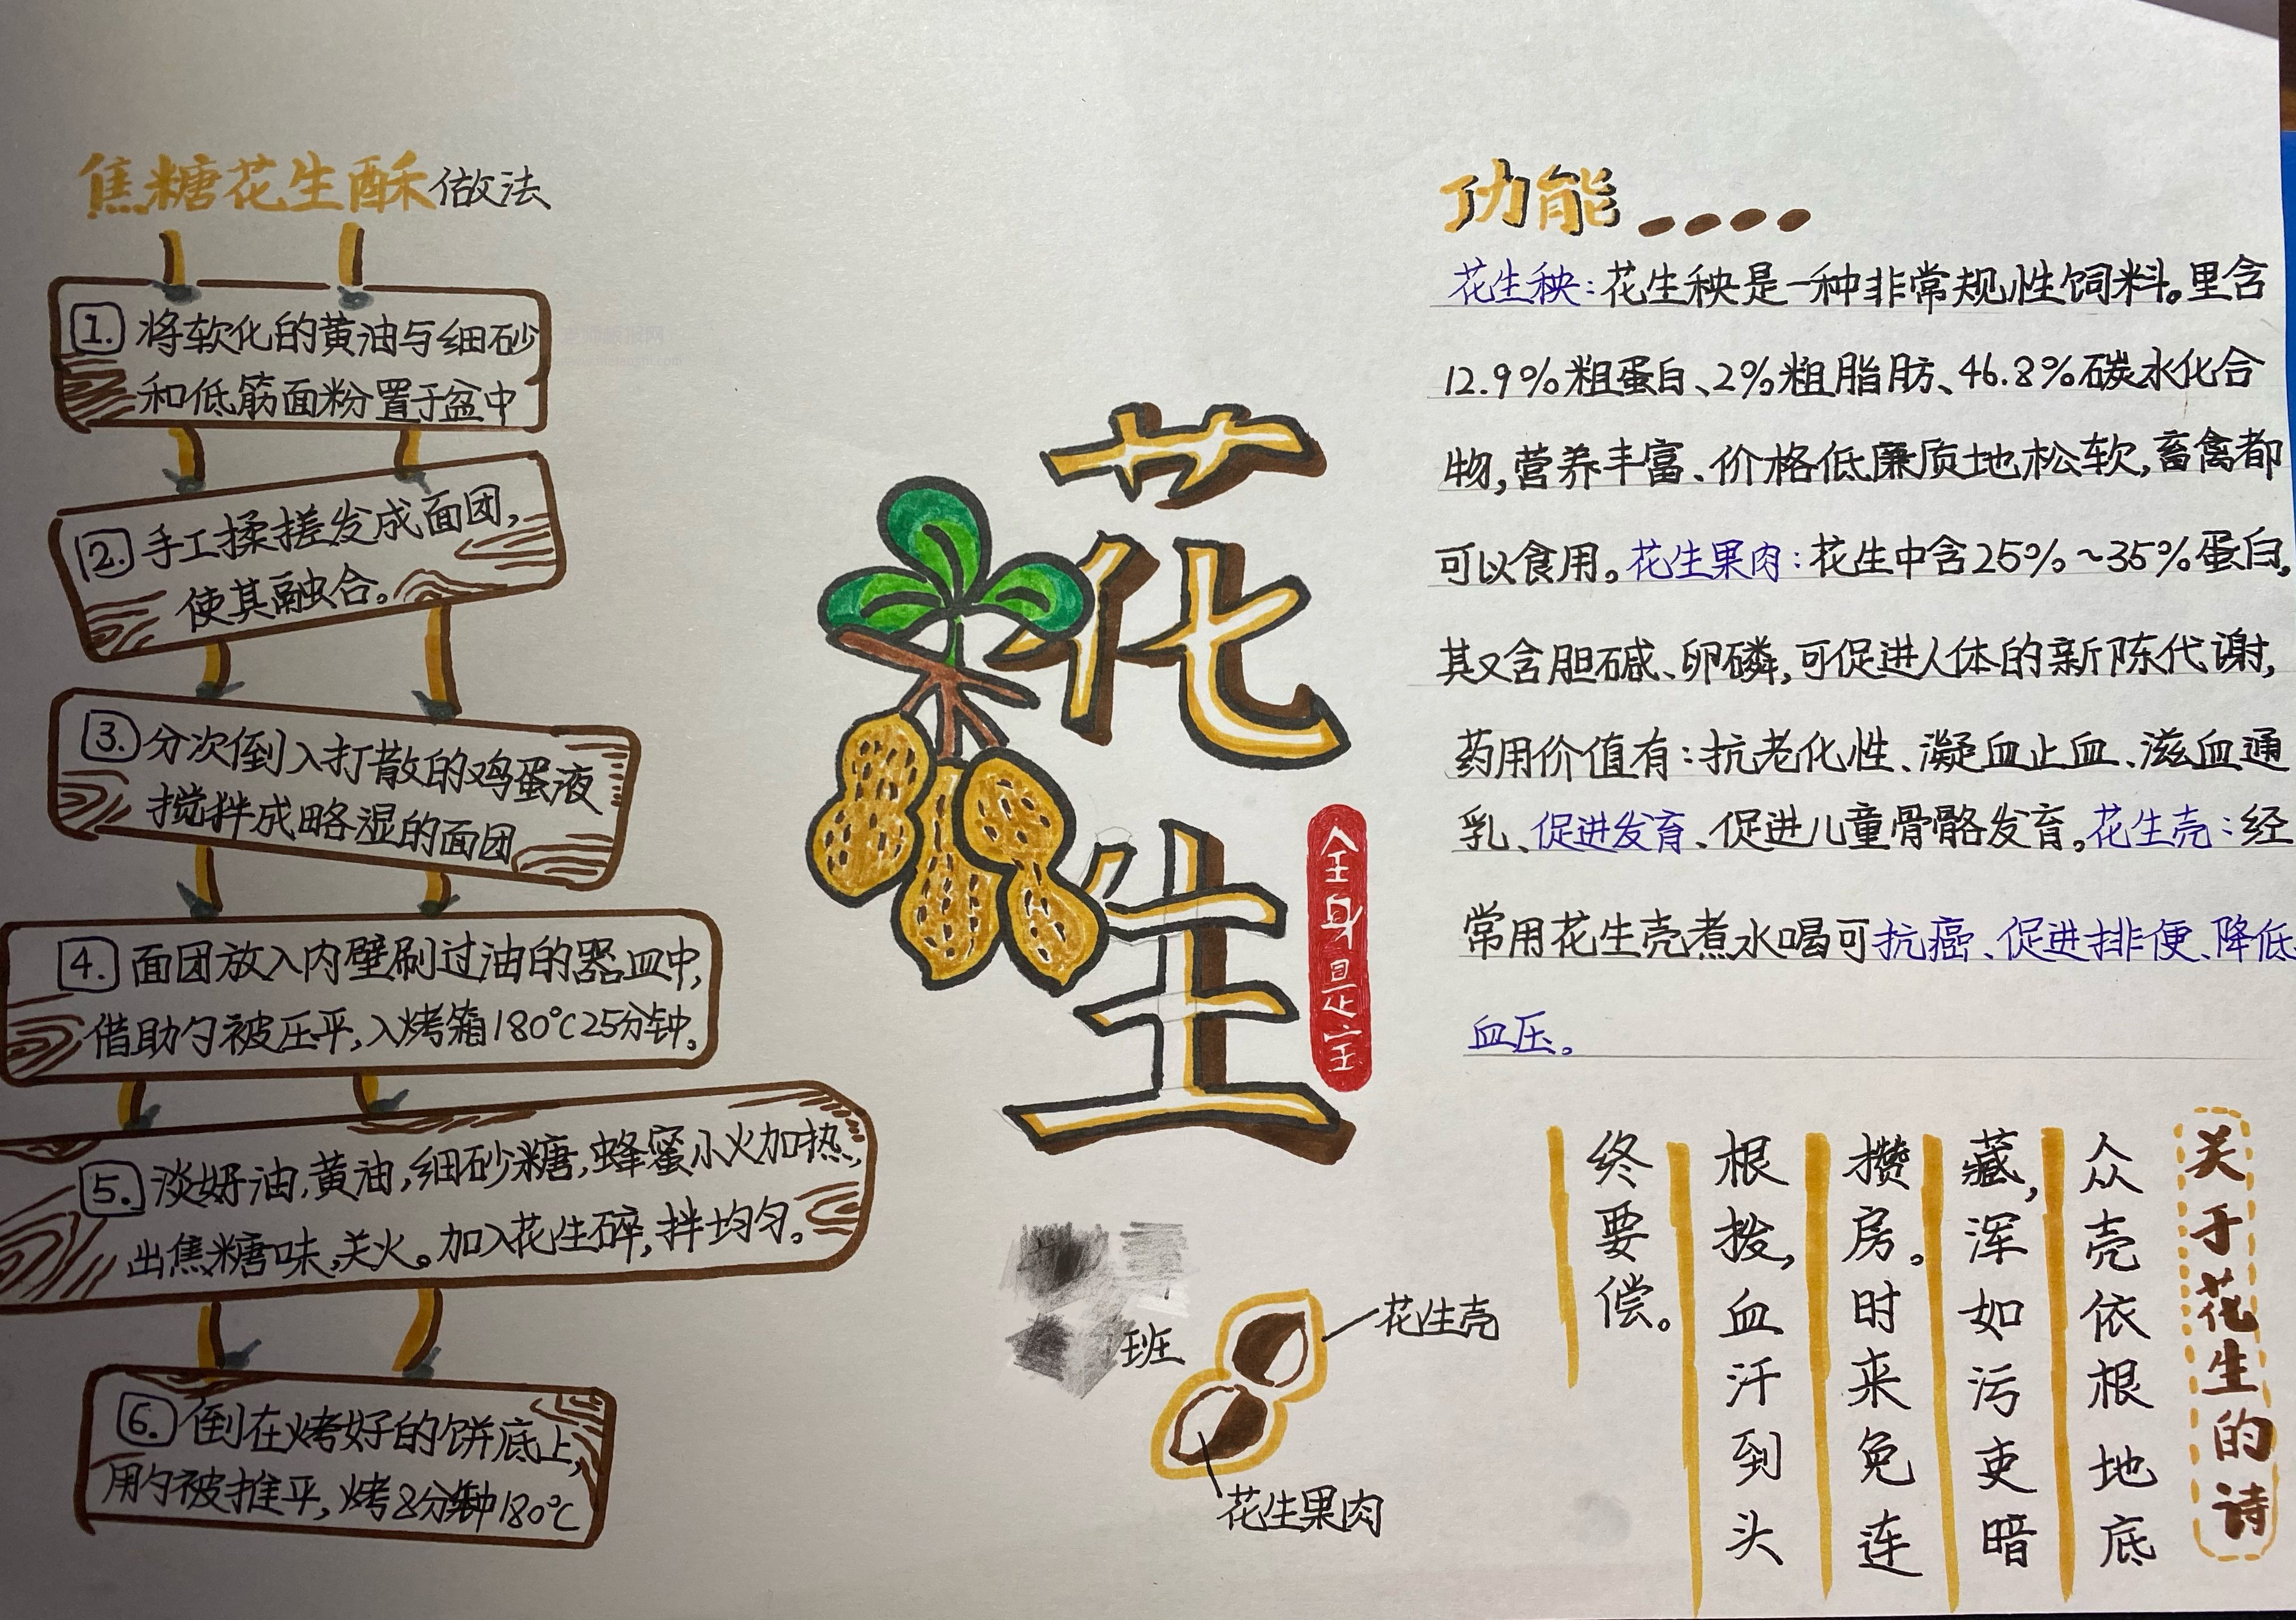 焦糖花生酥做法
1. 将软化的黄油与细砂
和低筋面粉置于盆中
2. 手工揉搓发成面团,
使其融合。
3. 分次倒入打散的鸡蛋液
搅拌成略湿的面团
4. 面团放入内壁刷过油的器皿中,
借助勺被压平,入烤箱180℃25分钟。
5. 淡奶油,黄油,细砂糖,蜂蜜小火加热,
出焦糖味,关火。加入花生碎,拌均匀。
6. 倒在烤好的饼底上,
用勺被推平,烤8分钟180℃
花生
全身是宝
班
花生壳
花生果肉
功能
花生秧:花生秧是一种非常规性饲料。里含
12.9%粗蛋白、2%粗脂肪、46.8%碳水化合
物,营养丰富、价格低廉质地松软,畜禽都
可以食用。花生果肉:花生中含25%~35%蛋白,
其又含胆碱、卵磷,可促进人体的新陈代谢,
药用价值有:抗老化性、凝血止血、滋血通
乳、促进发育、促进儿童骨骼发育。花生壳:经
常用花生壳煮水喝可抗癌、促进排便、降低
血压。
关于花生的诗
众壳依根地底
藏,浑如污吏暗
攒房。时来兔连
根拨,血汗到头
终要偿。